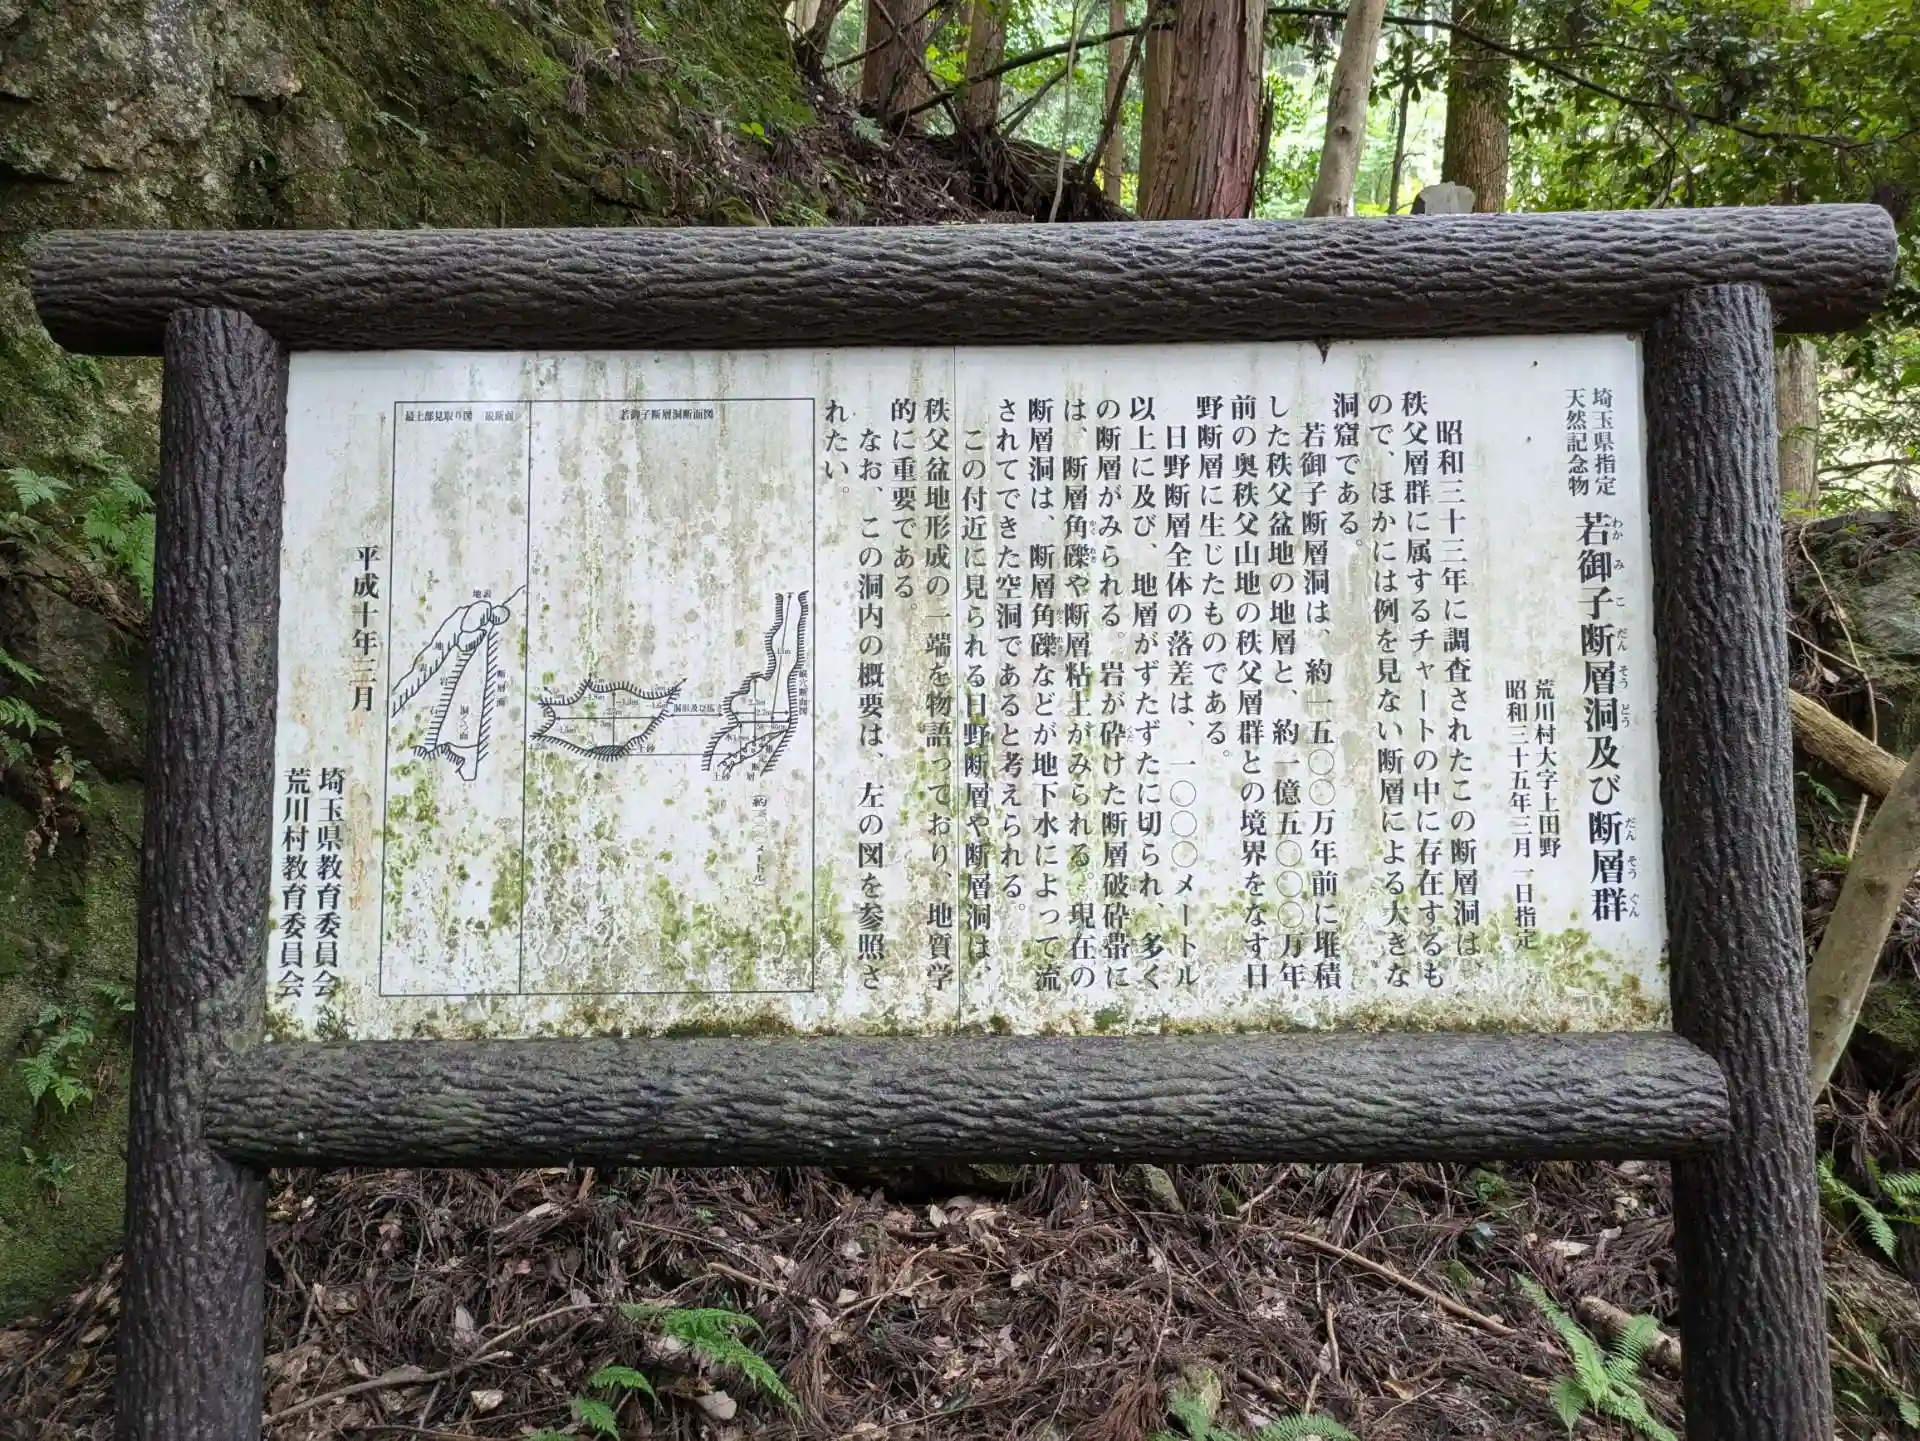 埼玉県指定
天然記念物
若御子断層洞及び断層群
わか み こ だん そう どう だん そう ぐん
荒川村大字上田野
昭和三十五年三月一日指定
昭和三十三年に調査されたこの断層洞は、
秩父層群に属するチャートの中に存在するも
ので、ほかには例を見ない断層による大きな
洞窟である。
若御子断層洞は、約一五〇〇万年前に堆積
した秩父盆地の地層と、約一億五〇〇〇万年
前の奥秩父山地の秩父層群との境界をなす日
野断層に生じたものである。
日野断層全体の落差は、一〇〇〇メートル
以上に及び、地層がずたずたに切られ、多く
の断層がみられる。岩が砕けた断層破砕帯に
は、断層角礫や断層粘土がみられる。現在の
断層洞は、断層角礫などが地下水によって流
されてできた空洞であると考えられる。
この付近に見られる日野断層や断層洞は、
秩父盆地形成の一端を物語っており、地質学
的に重要である。
なお、この洞内の概要は、左の図を参照さ
れたい。
若御子断層洞断面図
洞形及び広さ
土砂
土砂
断層
最上部見取り図 縦断面
地表
地表
断層面
岩石
平成十年三月
埼玉県教育委員会
荒川村教育委員会